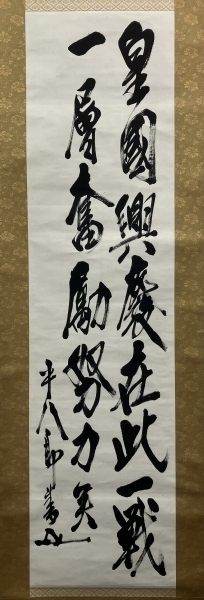 皇國興廢在此一戰
一層奮勵努力矣
平八郎書